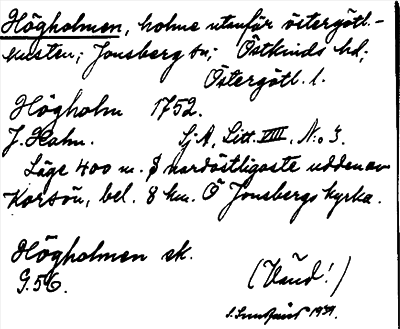 Högholmen, holme utanför östergötl.-
kusten; Jonsberg sn; Östkinds hd;
Östergötl. l.
Högholm 1752.
J. Hahn. Sj. A, Litt. VIII, No 3.
Läge 400 m. S nordöstligaste udden av
Korsön, bel. 8 km. Ö Jonsbergs kyrka.
Högholmen ek.
G.56. (Vänd!)
1939.